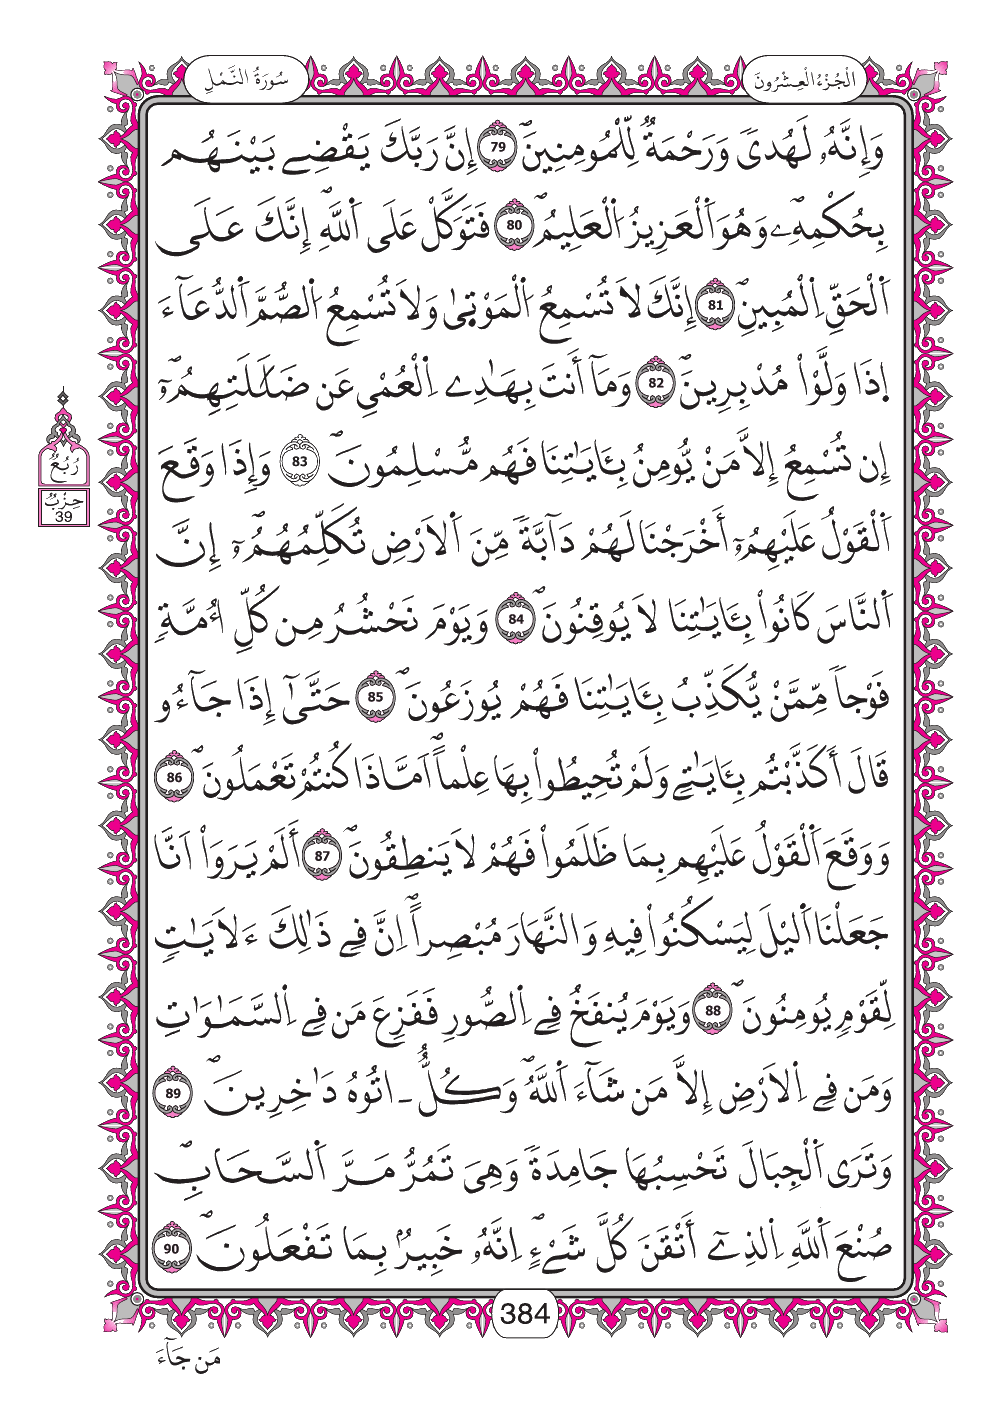 سُورَةُ النَّمْلِ
الْجُزْءُ الْعِشْرُونَ
وَإِنَّهُۥ لَهُدىٗ وَرَحْمَةٞ لِّلْمُومِنِينَۖ 79 إِنَّ رَبَّكَ يَقْضِے بَيْنَهُم
بِحُكْمِهِۦۖ وَهُوَ اَ۬لْعَزِيزُ اُ۬لْعَلِيمُۖ 80 فَتَوَكَّلْ عَلَى اَ۬للَّهِۖ إِنَّكَ عَلَى
اَ۬لْحَقِّ اِ۬لْمُبِينِۖ 81 إِنَّكَ لَا تُسْمِعُ اُ۬لْمَوْت۪ىٰ وَلَا تُسْمِعُ اُ۬لصُّمَّ اَ۬لدُّعَآءَ
اِ۪ذَا وَلَّوْاْ مُدْبِرِينَۖ 82 وَمَآ أَنتَ بِهَٰدِے اِ۬لْعُمْيِ عَن ضَلَٰلَتِهِمُۥٓۖ
إِن تُسْمِعُ إِلَّا مَنْ يُّومِنُ بِـَٔايَٰتِنَا فَهُم مُّسْلِمُونَۖ 83 وَإِذَا وَقَعَ
اَ۬لْقَوْلُ عَلَيْهِمُۥٓ أَخْرَجْنَا لَهُمْ دَآبَّةٗ مِّنَ اَ۬لَارْضِ تُكَلِّمُهُمُۥٓۖ إِنَّ
اَ۬لنَّاسَ كَانُواْ بِـَٔايَٰتِنَا لَا يُوقِنُونَۖ 84 وَيَوْمَ نَحْشُرُ مِن كُلِّ أُمَّةٖ
فَوْجاٗ مِّمَّنْ يُّكَذِّبُ بِـَٔايَٰتِنَا فَهُمْ يُوزَعُونَۖ 85 حَتَّىٰٓ إِذَا جَآءُو
قَالَ أَكَذَّبْتُم بِـَٔايَٰتِے وَلَمْ تُحِيطُواْ بِهَا عِلْماًۖ اَمَّاذَا كُنتُمْ تَعْمَلُونَۖ 86
وَوَقَعَ اَ۬لْقَوْلُ عَلَيْهِم بِمَا ظَلَمُواْ فَهُمْ لَا يَنطِقُونَۖ 87 أَلَمْ يَرَوَاْ اَنَّا
جَعَلْنَا اَ۬ليْلَ لِيَسْكُنُواْ فِيهِ وَالنَّهَارَ مُبْصِراًۖ اِنَّ فِے ذَٰلِكَ ءَلَايَٰتٖ
لِّقَوْمٖ يُومِنُونَۖ 88 وَيَوْمَ يُنفَخُ فِے اِ۬لصُّورِ فَفَزِعَ مَن فِے اِ۬لسَّمَٰوَٰتِ
وَمَن فِے اِ۬لَارْضِ إِلَّا مَن شَآءَ اَ۬للَّهُۖ وَكُلٌّ ـ اتُوهُ دَٰخِرِينَۖ 89
وَتَرَى اَ۬لْجِبَالَ تَحْسِبُهَا جَامِدَةٗ وَهِىَ تَمُرُّ مَرَّ اَ۬لسَّحَابِۖ
صُنْعَ اَ۬للَّهِ اِ۬لذِےٓ أَتْقَنَ كُلَّ شَےْءٍۖ اِنَّهُۥ خَبِيرُۢ بِمَا تَفْعَلُونَۖ 90
رُبُعُ
حِزْبُ
39
384
مَن جَآءَ